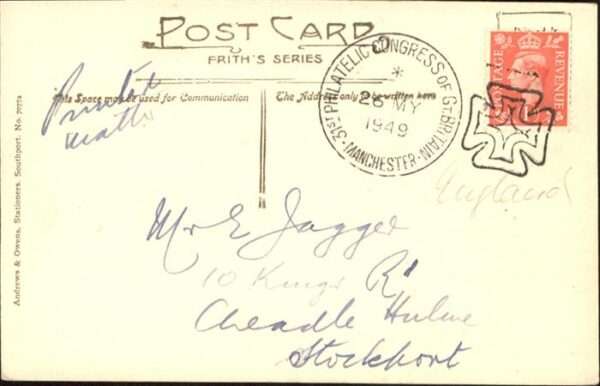 POST CARD
FRITH'S SERIES
This Space may be used for Communication
The Address only to be written here
Printed
matter
31ST PHILATELIC CONGRESS OF GT. BRITAIN
*
26 MY
1949
· MANCHESTER ·
POSTAGE
REVENUE
England
Mr E Jagger
10 Kings Rd
Cheadle Hulme
Stockport
Andrews & Owens, Stationers, Southport. No. 7772